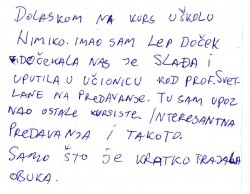 DOLASKOM NA KURS U ŠKOLU
NIMIKO. IMAO SAM LEP DOČEK
DOČEKALA NAS JE SLAĐA I
UPUTILA U UČIONICU KOD PROF. SVET-
LANE NA PREDAVANJE. TU SAM UPOZ
NAO OSTALE KURSISTE / INTERESANTNA
PREDAVANJA I TAKO TO.
SAMO ŠTO JE KRATKO TRAJALA
OBUKA.